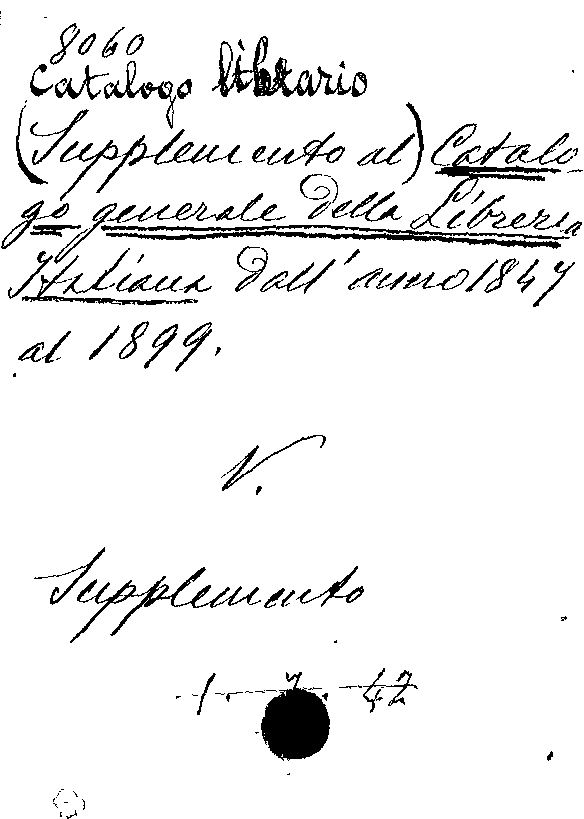 8060
Catalogo librario
(Supplemento al) Catalo-
go generale della Libreria
Italiana dall'anno 1847
al 1899.
V.
Supplemento
1. 7. 42